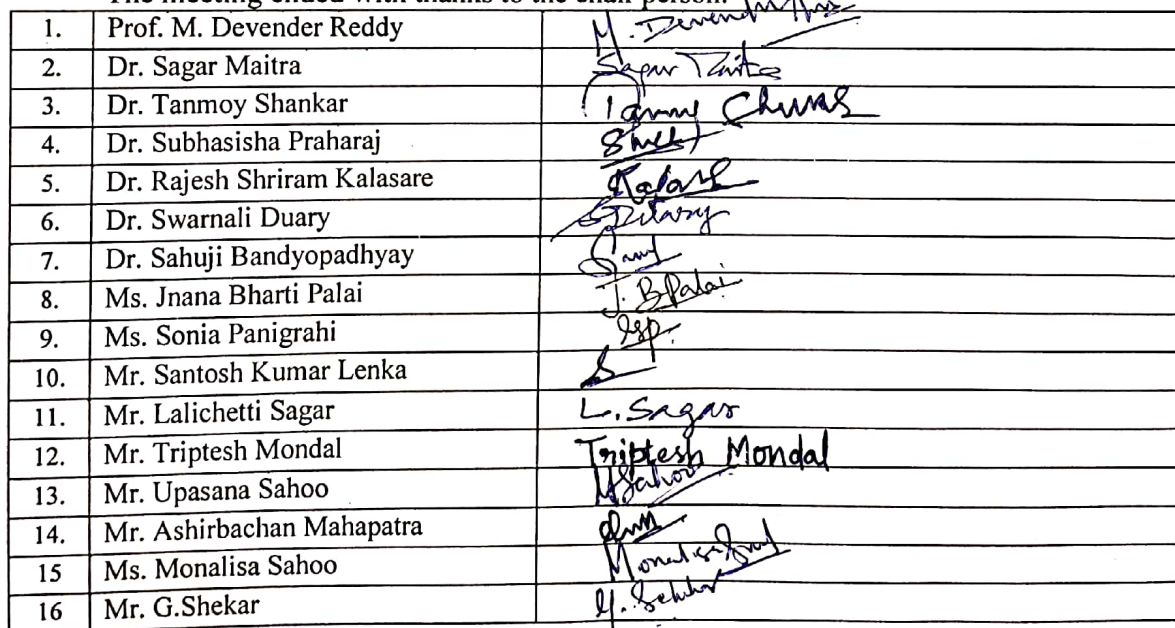 The meeting ended with thanks to the chair person.
1. Prof. M. Devender Reddy M. Devender
2. Dr. Sagar Maitra Sagar Maitra
3. Dr. Tanmoy Shankar
4. Dr. Subhasisha Praharaj
5. Dr. Rajesh Shriram Kalasare
6. Dr. Swarnali Duary SDuary
7. Dr. Sahuji Bandyopadhyay
8. Ms. Jnana Bharti Palai J. B Palai
9. Ms. Sonia Panigrahi
10. Mr. Santosh Kumar Lenka
11. Mr. Lalichetti Sagar L. Sagar
12. Mr. Triptesh Mondal Triptesh Mondal
13. Mr. Upasana Sahoo USahoo
14. Mr. Ashirbachan Mahapatra
15 Ms. Monalisa Sahoo Monalisa
16 Mr. G.Shekar